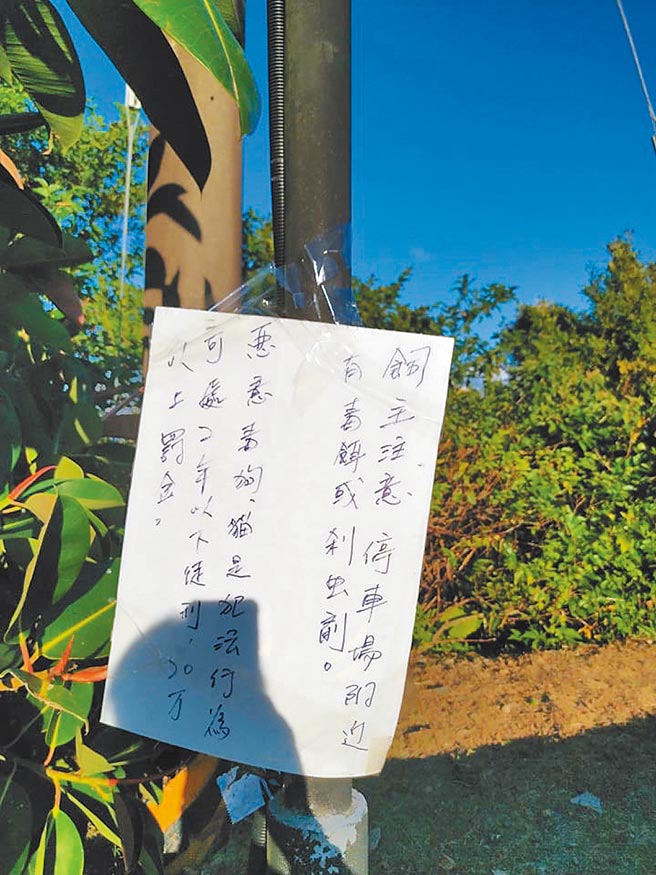 飼主注意 停車場附近
有毒餌或剎虫劑。
惡意毒狗、貓是犯法行為
可處2年以下徒刑,20万
以上罰金。